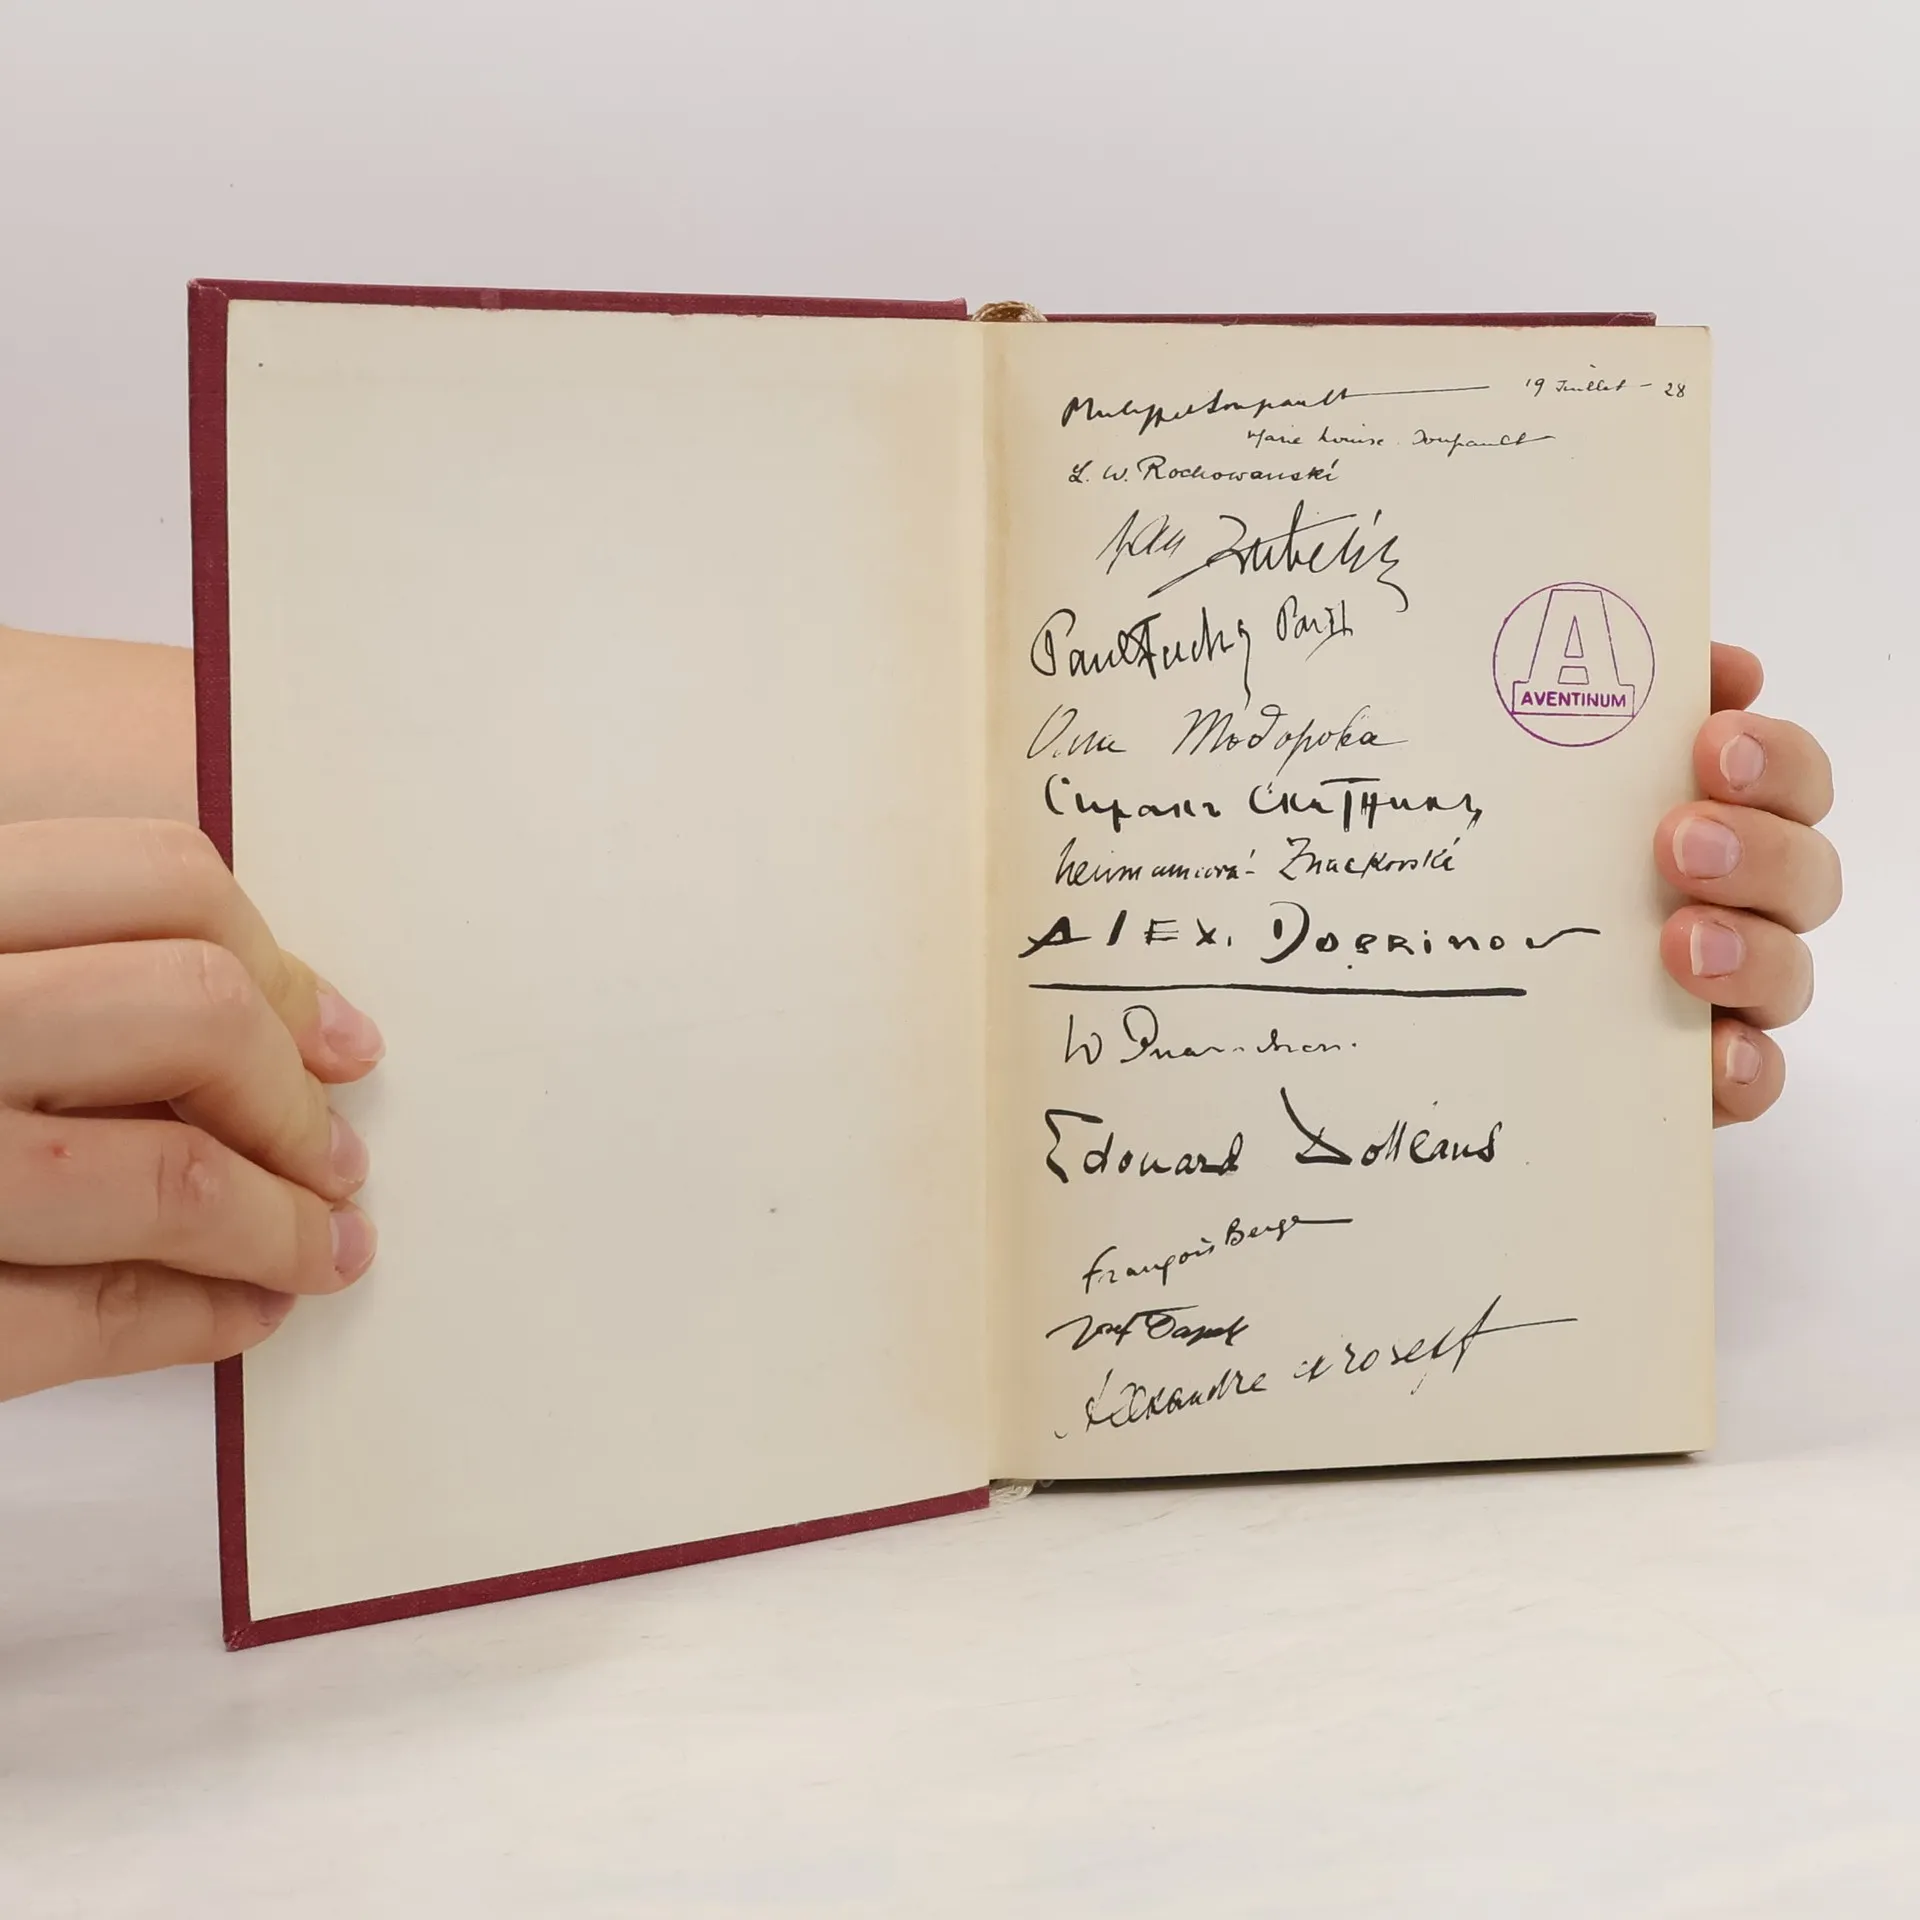 Philippe Soupault 19 Juillet - 28
Marie Louise Soupault
L. W. Rochowanski
Jan
Paul Fuchs Paris
Сиракъ Скитникъ
ALEX. DOBRINOV
W
Edouard Dolléans
François Berge
Josef Čapek
Alexandre
AVENTINUM